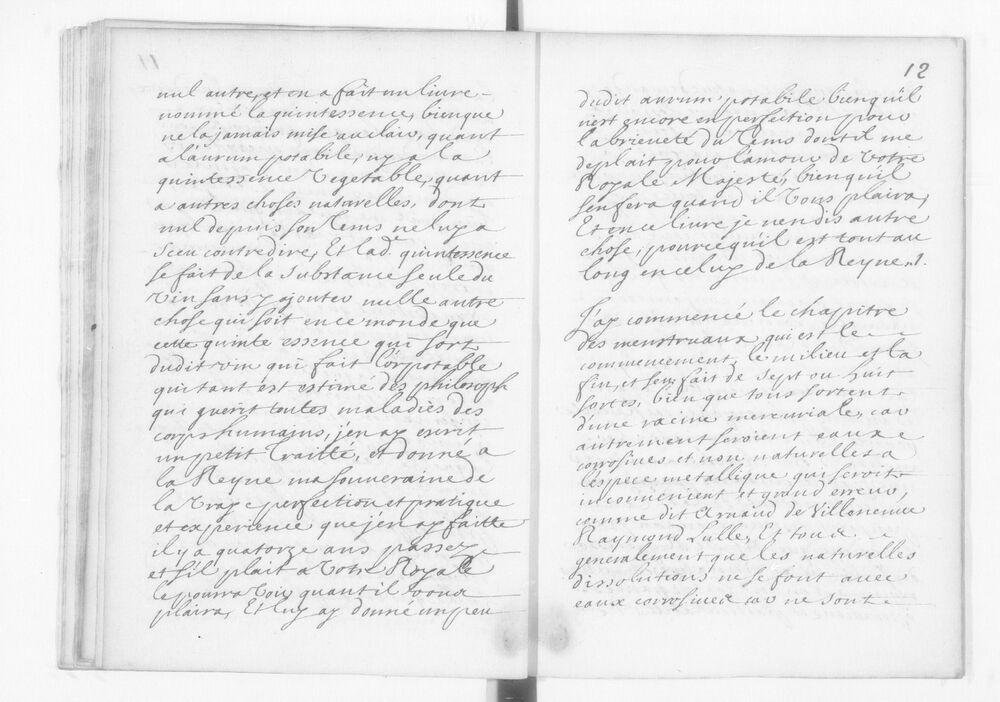 11
nul autre, et en a fait un livre
nommé la quintessence, bienque
ne la jamais mise au clair, quant
a l'aurum potabile, ny a la
quintessence Vegetable, quant
a autres choses naturelles, dont
nul depuis son tems ne luy a
sceu contredire, Et lad. quintessence
se fait de la substance seule du
Vin sans y ajouter nulle autre
chose qui soit en ce monde que
cette quinte essence qui sort
dudit vin qui fait l'or potable
qui tant est estimé des philosoph.
qui guerit toutes maladies des
corps humains, j'en ay escrit
un petit Traitté, et donné a
la Reyne ma souveraine de
la Vraye perfection et pratique
et experience que j'en ay faitte
il y a quatorze ans passez
et s'il plait a Votre Royale
le pourra Voir quant il vous
plaira, Et luy ay donné un peu
12
dudit aurum potabile bienqu'il
n'est encore en perfection pour
la brieueté du Tems dont il me
deplait pour l'amour de Votre
Royale Majesté, bienqu'il
s'en fera quand il Vous plaira,
Et en ce livre je n'en dis autre
chose, pource qu'il est tout au
long en celuy de la Reyne.
J'ay commencé le chapitre
des menstruaux, qui est le
commencement, le milieu et la
fin, et s'en fait de Sept ou huit
sortes, bien que tous sortent
d'une racine mercuriale, car
autrement seroient eaux
corrosives et non naturelles a
l'espece metallique qui seroit
inconvenient et grand erreur,
comme dit Arnaud de Villeneuve
Raymond Lulle, Et tous
generalement que les naturelles
dissolutions ne se font avec
eaux corrosives car ne sont